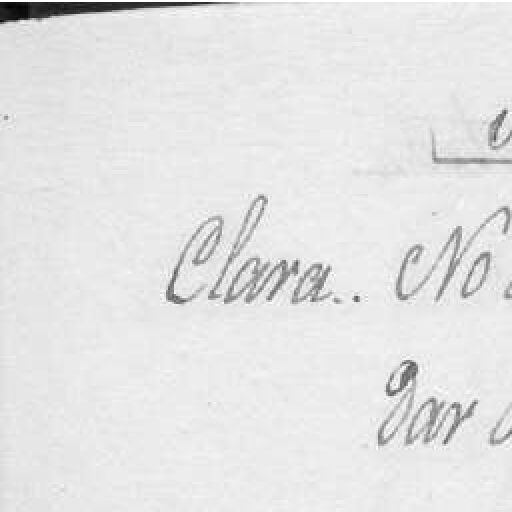 Clara.. No
dar